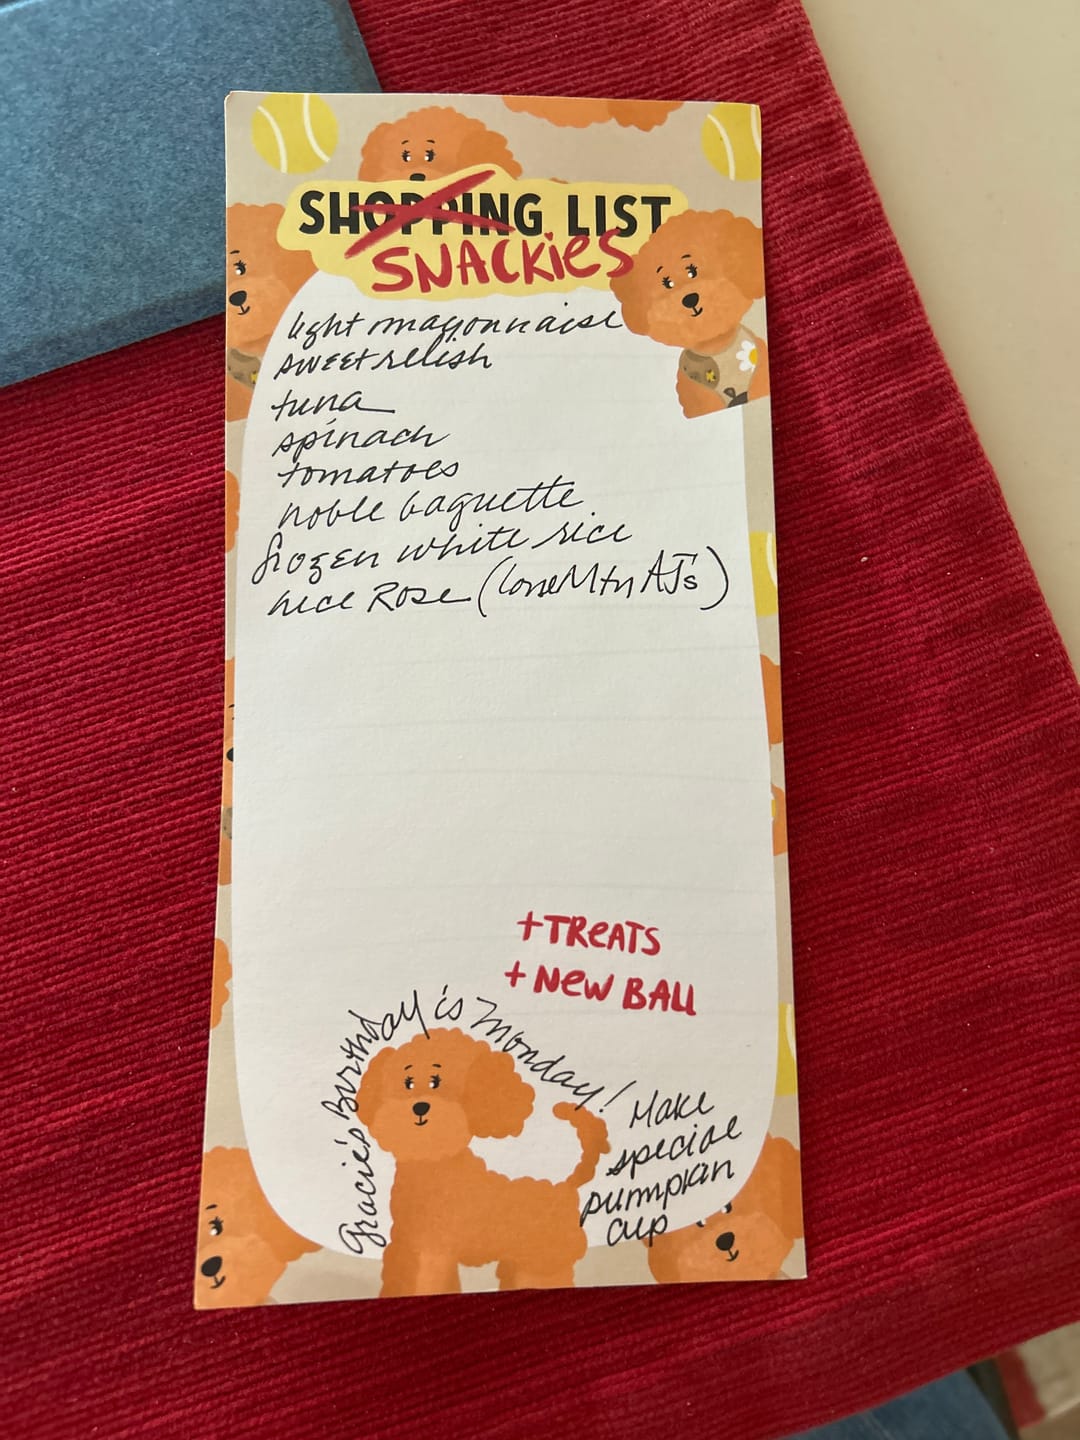 SHOPPING LIST
SNACKIES
light mayonnaise
sweet relish
tuna
spinach
tomatoes
noble baguette
frozen white rice
nice Rose (Lone Mtn AJ's)
+ TREATS
+ NEW BALL
Gracie's Birthday is Monday!
Make
special
pumpkin
cup